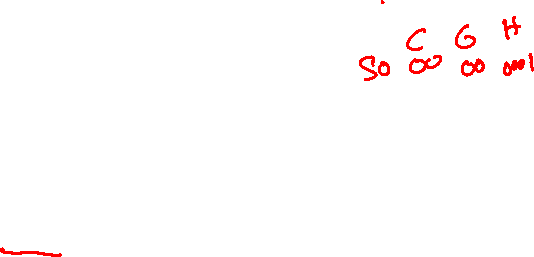 C G H
S0 00 00 0001